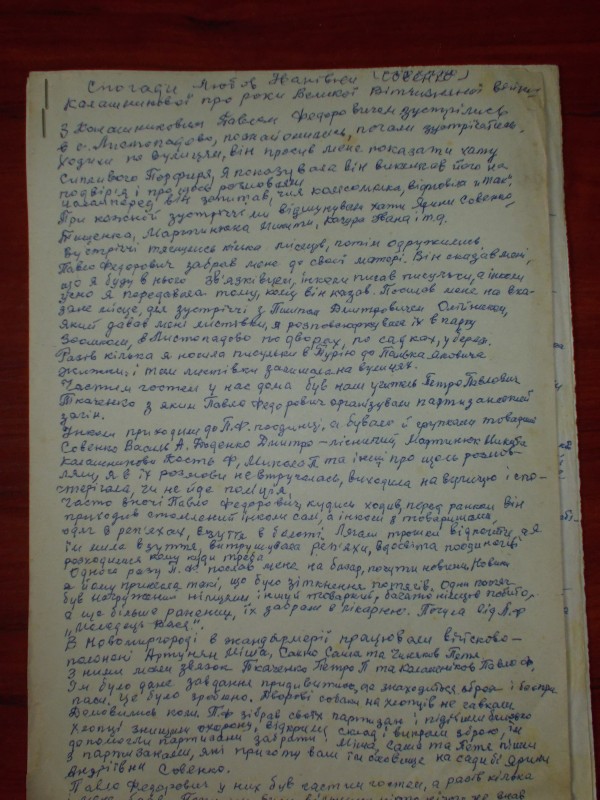 Спогади Любов Іванівни (СОВЕНКО)
Калашникової про роки Великої Вітчизняної війни
З Калашниковим Павлом Федоровичем зустрілись
в с. Листопадово, познайомились, почали зустрічатись.
Ходили по вулицям, він просив мене показати хату
Сипливого Порфиря, я показувала він викликав його на
подвір'я і про щось розмовляли
він запитав, чия комсомолка, відповіла "так".
При кожній зустрічі ми відшукували хати Ярини Совенко,
Тищенка, Мартинюка Микити, Качура Івана і т.д.
Зустрічі тяглись кілька місяців, потім одружились.
Павло Федорович забрав мене до своєї матері. Він сказав мені,
що я буду в нього зв'язківцем, інколи писав писульки, а інколи
усно я передавала тому, кому він казав. Посилав мене на вка-
зане місце, для зустрічі з Дмитровичем Олійником,
який давав мені листівки, я розповсюджувала їх в парку
в Листопадово по дворах, по садках, у берег.
Разів кілька я носила писульки в Турію до Панька Яковича
і там листівки залишала на вулицях.
Частим гостем у нас дома був наш учитель Петро Павлович
Ткаченко з яким Павло Федорович організували партизанський
загін.
Інколи приходили до П.Ф. поодинці, а бувало й групками товариші
Совенко Василь А. Діденко Дмитро – лісничий, Мартинюк Микита
Калашников Кость Ф, Микола П та інші про щось розмов-
ляли, я в їх розмови не втручалась, виходила на вулицю і спо-
стерігала, чи не йде поліція.
Часто вночі Павло Федорович кудись ходив, перед ранком він
приходив стомлений інколи сам, а інколи з товаришами,
одяг в реп'яхах, взуття в болоті. Лягали трошки відпочити, а я
їм мила взуття витрушувала реп'яхи, вдосвіта поодинці
розходились кому куди треба
Одного разу П.Ф. послав мене на базар, почути новини. Новини
я йому принесла такі, що було зіткнення потягів. Один потяг
був нагружений німцями інший товарний, багато німців побито,
а ще більше ранених, їх забрали в лікарню. Почула від П.Ф
"Молодець Вася".
В Новомиргороді в жандармерії працювали військово-
полонені Арутунян Міша, Саенко Саша та Чижов Петя.
З ними мали звязок Ткаченко Петро П та Калашніков Павло Ф.
Їм було дане завдання придивитись, де знаходиться зброя і боєпри-
паси. Це було зроблено. Дворові собаки на хлопців не гавкали
Домовились коли П.Ф зібрав своїх партизан і підійшли близько
хлопці знищили охорону, відкрили склад і винесли зброю, їм
допомогли партизани забрати. Міша, Саша та Петя пішли
з партизанами, які приготували їм сховище на садибі Ярини
Андріївни Совенко.
Павло Федорович у них був частим гостем, а разів кілька